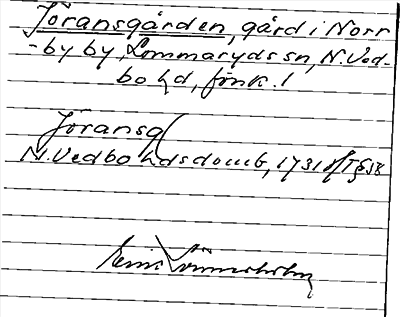 Jöransgården, gård i Norr
-by by, Lommaryds sn, N. Ved-
bo hd, Jönk. l
Jöransg
N. Vedbo hds domb, 1731 Ht § 58